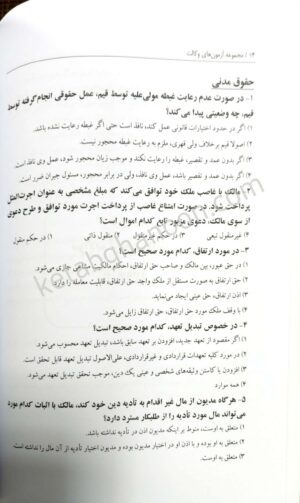 ۱۴ / مجموعه آزمون‌های وکالت
حقوق مدنی
۱- در صورت عدم رعایت غبطه مولی‌علیه توسط قیم، عمل حقوقی انجام‌گرفته توسط
قیم، چه وضعیتی پیدا می‌کند؟
۱) اگر در حدود اختیارات قانونی عمل کند، نافذ است حتی اگر غبطه رعایت نشده باشد.
۲) اصولا قیم بر خلاف ولی قهری، ملزم به رعایت غبطه نیست.
۳) اگر بدون عمد و تقصیر، غبطه را رعایت نکند و موجب زیان محجور شود، عمل وی نافذ
۴) اگر بدون عمد و تقصیر باشد، عمل وی نافذ ولی در برابر محجور، مسئول جبران ضرر است
۲- مالک با غاصب ملک خود توافق می‌کند که مبلغ مشخصی به عنوان اجرت‌المثل
پرداخت شود. در صورت امتناع غاصب از پرداخت اجرت مورد توافق و طرح دعوی
از سوی مالک، دعوی مزبور تابع کدام اموال است؟
۱) غیرمنقول تبعی ۲) در حکم غیرمنقول ۳) منقول ذاتی ۴) در حکم منقول
۳- در مورد ارتفاق، کدام مورد صحیح است؟
۱) در حق عبور، بین مالک و صاحب حق ارتفاق، احکام مالکیت مشاعی جاری می‌شود.
۲) حق ارتفاق به صورت مستقل از ملک واجد حق ارتفاق، قابلیت معامله را دارد.
۳) اذن ارتفاق، حق عینی ایجاد می‌نماید.
۴) با وقف ملک مورد حق ارتفاق، حق ارتفاق زایل می‌شود.
۴- در خصوص تبدیل تعهد، کدام مورد صحیح است؟
۱) اگر مقصود از تعهد جدید، افزودن بر تعهد سابق باشد، تبدیل تعهد محسوب می‌شود.
۲) در مورد کلیه تعهدات قراردادی و غیرقراردادی، علی‌الاصول تبدیل تعهد قابل تحقق است.
۳) افزودن یا کاستن وثیقه‌های شخصی و عینی یک دین، موجب تحقق تبدیل تعهد می‌شود.
۴) همه موارد
۵- هرگاه مدیون از مال غیر اقدام به تأدیه دین خود کند، مالک با اثبات کدام مورد
می‌تواند مال مورد تأدیه را از طلبکار مسترد دارد؟
۱) متعلق به اوست، منوط بر اینکه مدیون اذن در تأدیه نداشته باشد.
۲) متعلق به او بوده و با اذن او در اختیار مدیون بوده و مدیون اختیار تأدیه از آن مال را نداشته است.
۳) متعلق به اوست.